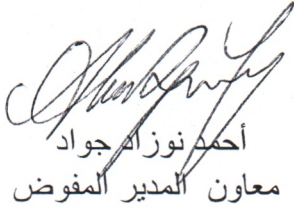 أحمد نوزاد جواد
معاون المدير المفوض